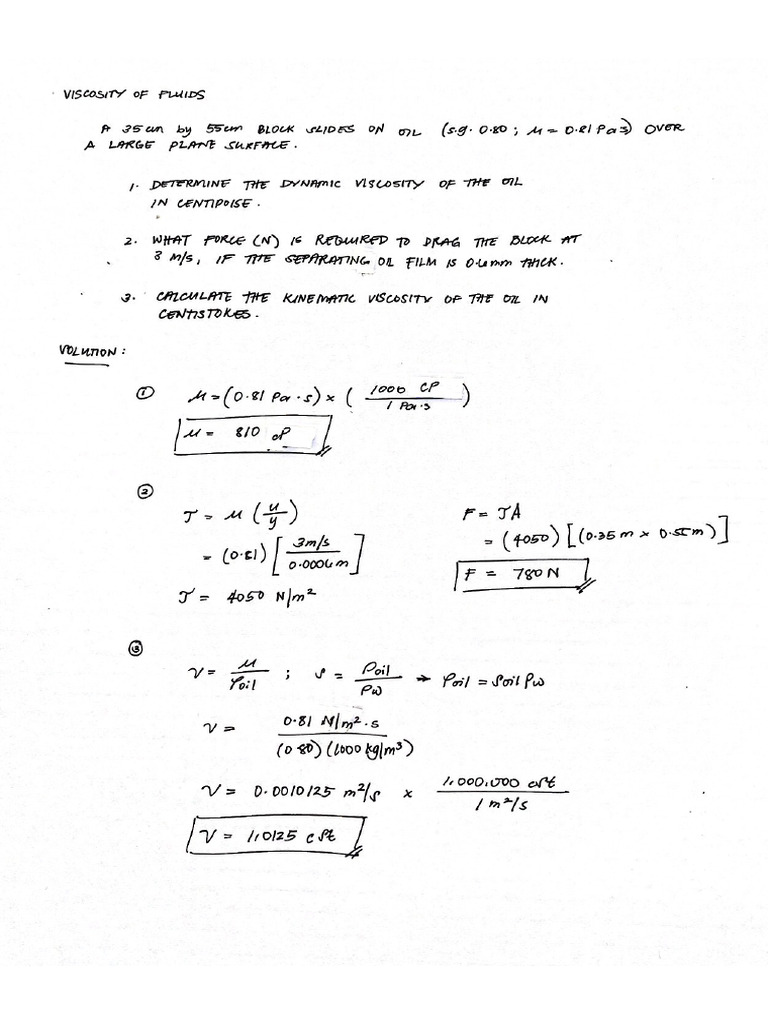 VISCOSITY OF FLUIDS
A 35cm by 55cm BLOCK SLIDES ON OIL (s.g. 0.80 ; μ = 0.81 Pa·s) OVER
A LARGE PLANE SURFACE.
1. DETERMINE THE DYNAMIC VISCOSITY OF THE OIL
IN CENTIPOISE.
2. WHAT FORCE (N) IS REQUIRED TO DRAG THE BLOCK AT
3 M/S, IF THE SEPARATING OIL FILM IS 0.6mm THICK.
3. CALCULATE THE KINEMATIC VISCOSITY OF THE OIL IN
CENTISTOKES.
SOLUTION :
① μ = (0.81 Pa·s) × ( 1000 CP / 1 Pa·s )
μ = 810 cP
②
τ = μ (u/y)
= (0.81) [ 3m/s / 0.0006m ]
τ = 4050 N/m²
F = τA
= (4050) [(0.35 m × 0.55m)]
F = 780 N
③
ν = μ / ρoil ; s = ρoil / ρw → ρoil = soil ρw
ν = 0.81 N/m²·s / (0.80)(1000 kg/m³)
ν = 0.0010125 m²/s × 1,000,000 cSt / 1 m²/s
ν = 1,0125 cSt